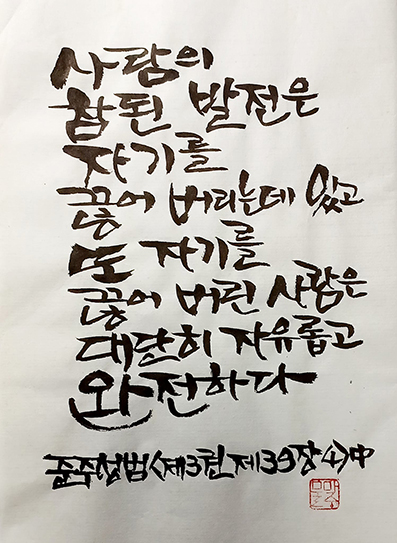 사람의
참된 발전은
자기를
끊어 버리는데 있고
또 자기를
끊어 버린 사람은
대단히 자유롭고
완전하다
준주성범<제3권 제39장 4>中